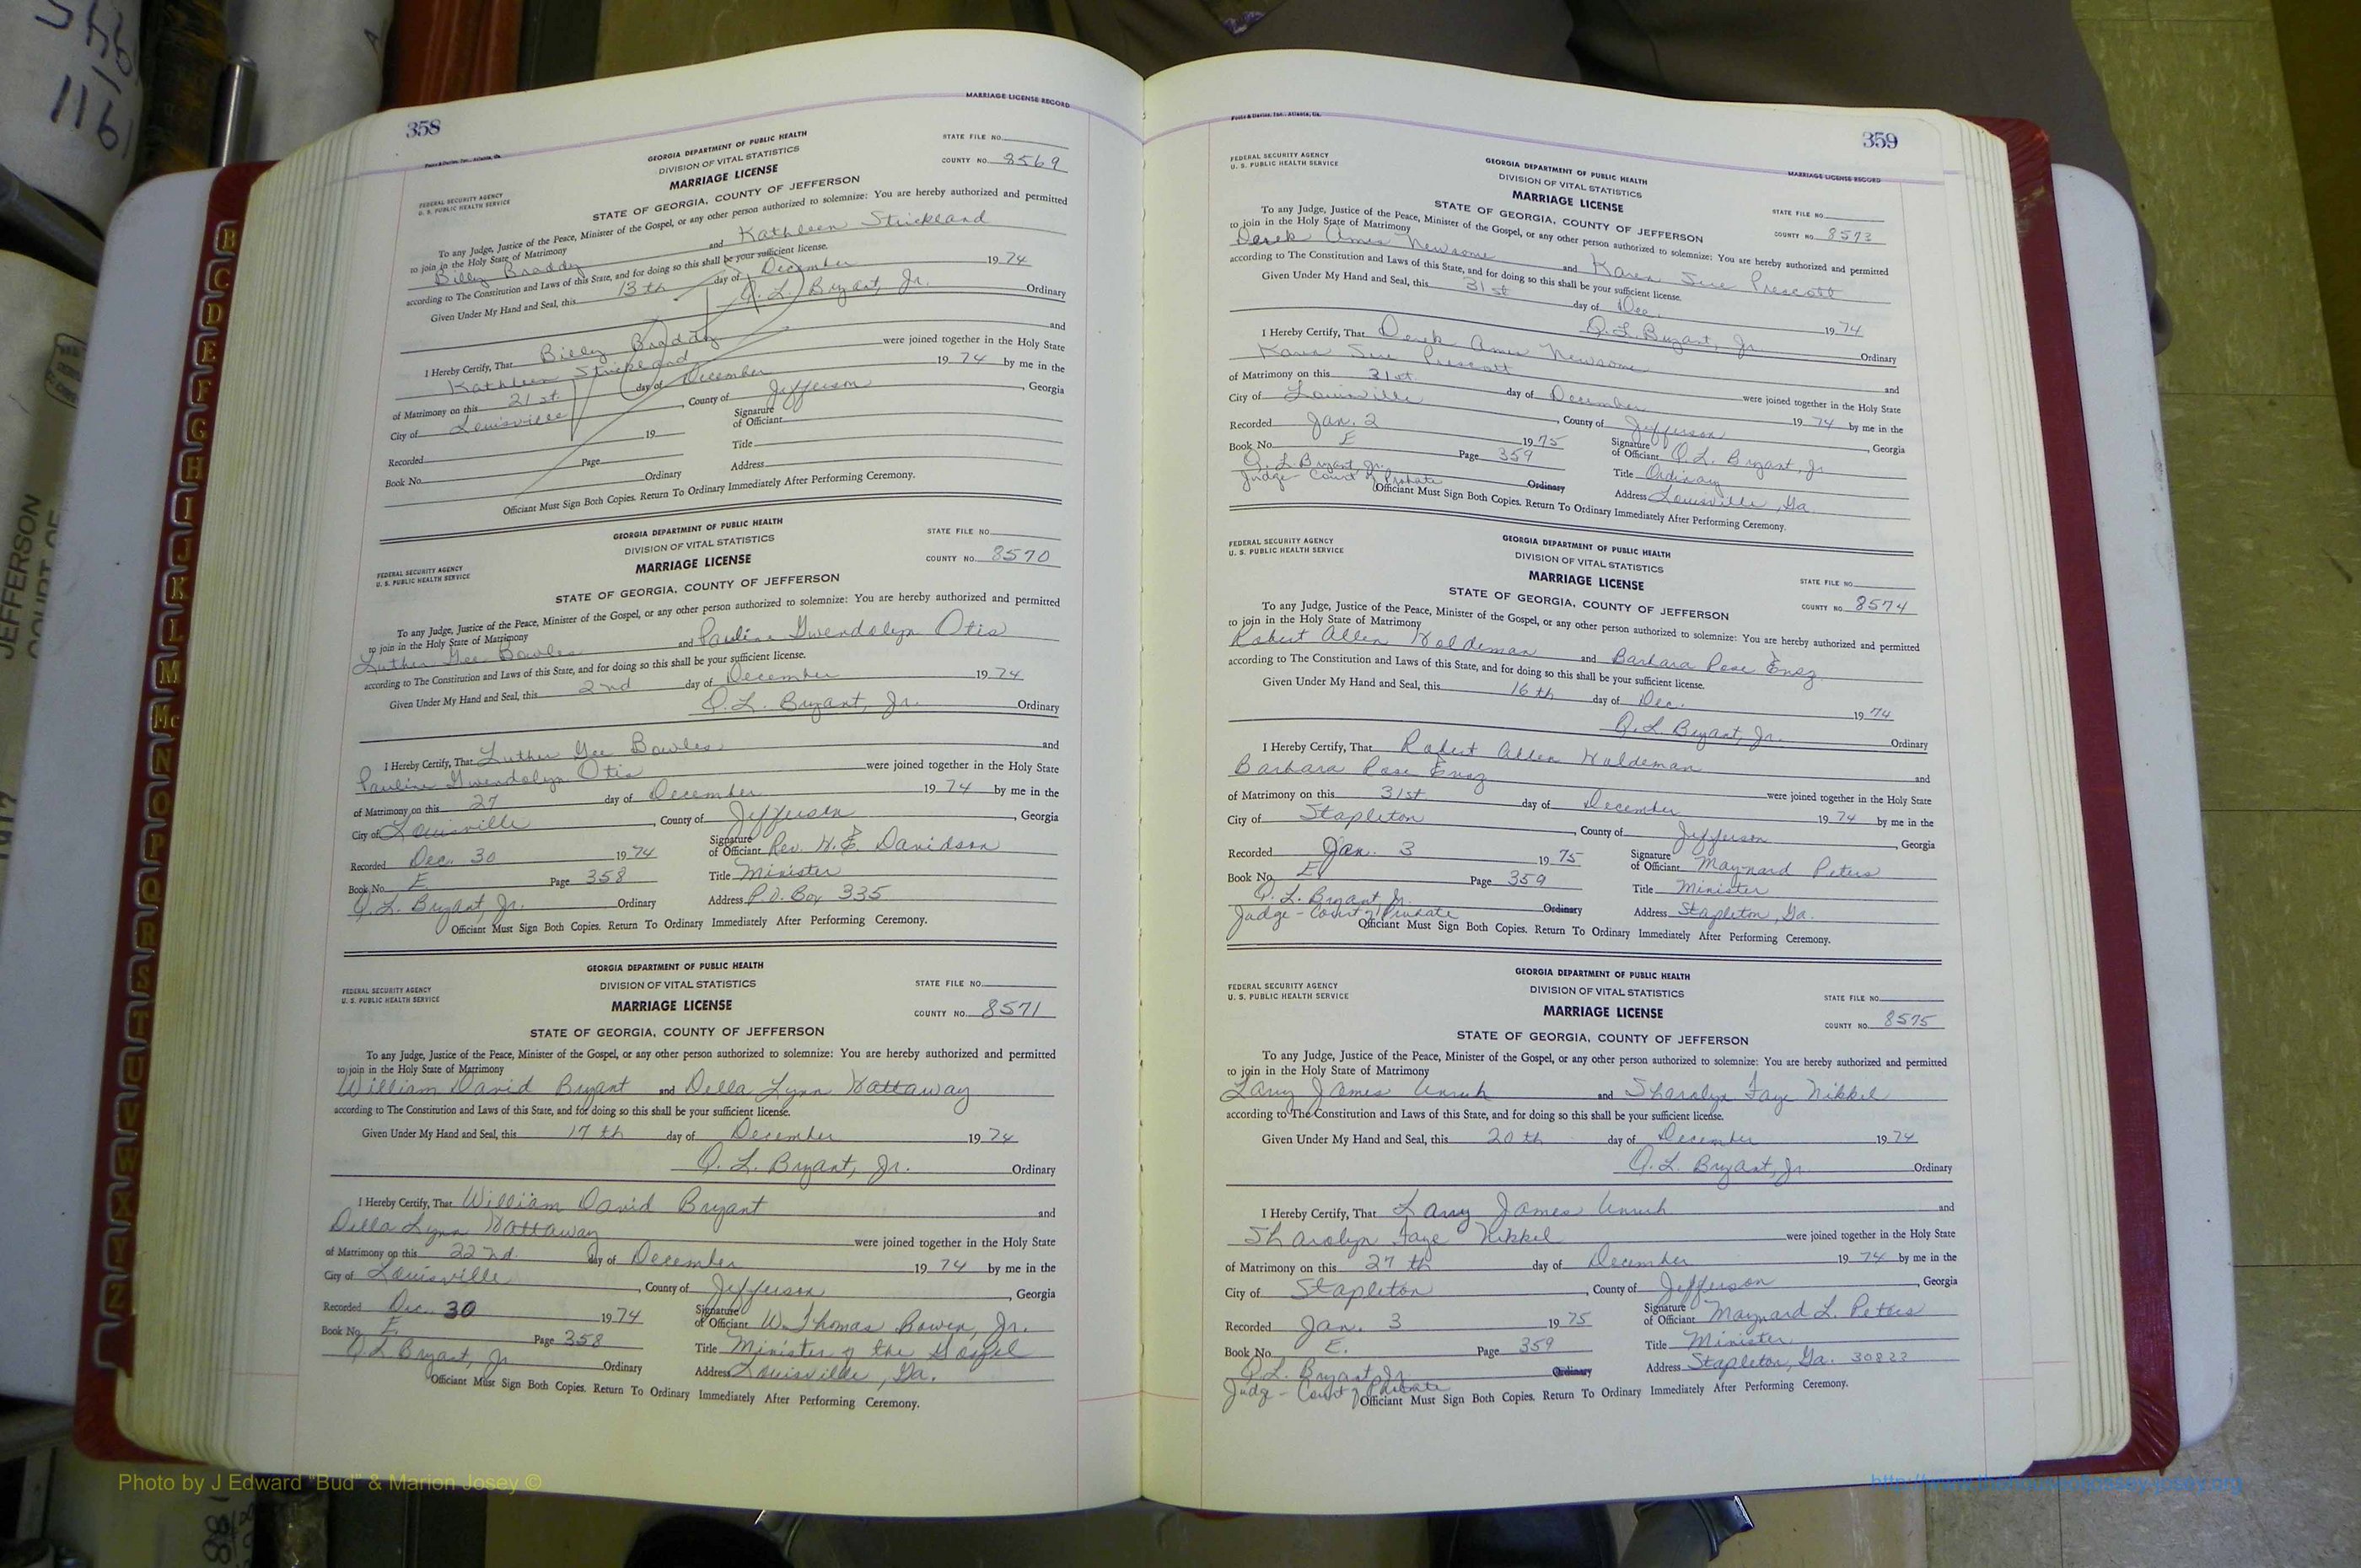 358
MARRIAGE LICENSE RECORD
Foote & Davies, Inc., Atlanta, Ga.
GEORGIA DEPARTMENT OF PUBLIC HEALTH
DIVISION OF VITAL STATISTICS
MARRIAGE LICENSE
STATE OF GEORGIA, COUNTY OF JEFFERSON
FEDERAL SECURITY AGENCY
U. S. PUBLIC HEALTH SERVICE
STATE FILE NO.
COUNTY NO. 8569
To any Judge, Justice of the Peace, Minister of the Gospel, or any other person authorized to solemnize: You are hereby authorized and permitted
to join in the Holy State of Matrimony
Billy Braddy and Kathleen Strickland
according to The Constitution and Laws of this State, and for doing so this shall be your sufficient license.
Given Under My Hand and Seal, this 13th day of December 19 74
Q. L. Bryant, Jr. Ordinary
I Hereby Certify, That Billy Braddy and
Kathleen Strickland were joined together in the Holy State
of Matrimony on this 21st day of December 19 74 by me in the
City of Louisville, County of Jefferson, Georgia
Recorded 19
Signature of Officiant
Book No. Page
Title
Ordinary
Address
Officiant Must Sign Both Copies. Return To Ordinary Immediately After Performing Ceremony.
GEORGIA DEPARTMENT OF PUBLIC HEALTH
DIVISION OF VITAL STATISTICS
MARRIAGE LICENSE
STATE OF GEORGIA, COUNTY OF JEFFERSON
FEDERAL SECURITY AGENCY
U. S. PUBLIC HEALTH SERVICE
STATE FILE NO.
COUNTY NO. 8570
To any Judge, Justice of the Peace, Minister of the Gospel, or any other person authorized to solemnize: You are hereby authorized and permitted
to join in the Holy State of Matrimony
Luther Gee Bowles and Pauline Gwendolyn Otis
according to The Constitution and Laws of this State, and for doing so this shall be your sufficient license.
Given Under My Hand and Seal, this 2nd day of December 19 74
Q. L. Bryant, Jr. Ordinary
I Hereby Certify, That Luther Gee Bowles and
Pauline Gwendolyn Otis were joined together in the Holy State
of Matrimony on this 27 day of December 19 74 by me in the
City of Louisville, County of Jefferson, Georgia
Recorded Dec. 30 19 74
Signature of Officiant Rev. H. E. Davidson
Book No. E Page 358
Title Minister
Q. L. Bryant, Jr. Ordinary
Address P.O. Box 335
Officiant Must Sign Both Copies. Return To Ordinary Immediately After Performing Ceremony.
GEORGIA DEPARTMENT OF PUBLIC HEALTH
DIVISION OF VITAL STATISTICS
MARRIAGE LICENSE
STATE OF GEORGIA, COUNTY OF JEFFERSON
FEDERAL SECURITY AGENCY
U. S. PUBLIC HEALTH SERVICE
STATE FILE NO.
COUNTY NO. 8571
To any Judge, Justice of the Peace, Minister of the Gospel, or any other person authorized to solemnize: You are hereby authorized and permitted
to join in the Holy State of Matrimony
William David Bryant and Della Lynn Hattaway
according to The Constitution and Laws of this State, and for doing so this shall be your sufficient license.
Given Under My Hand and Seal, this 17th day of December 19 74
Q. L. Bryant, Jr. Ordinary
I Hereby Certify, That William David Bryant and
Della Lynn Hattaway were joined together in the Holy State
of Matrimony on this 22nd day of December 19 74 by me in the
City of Louisville, County of Jefferson, Georgia
Recorded Dec. 30 19 74
Signature of Officiant W. Thomas Bowen, Jr.
Book No. E. Page 358
Title Minister of the Gospel
Q. L Bryant, Jr Ordinary
Address Louisville, Ga.
Officiant Must Sign Both Copies. Return To Ordinary Immediately After Performing Ceremony.
359
Foote & Davies, Inc., Atlanta, Ga.
MARRIAGE LICENSE RECORD
FEDERAL SECURITY AGENCY
U. S. PUBLIC HEALTH SERVICE
GEORGIA DEPARTMENT OF PUBLIC HEALTH
DIVISION OF VITAL STATISTICS
MARRIAGE LICENSE
STATE OF GEORGIA, COUNTY OF JEFFERSON
STATE FILE NO.
COUNTY NO. 8573
To any Judge, Justice of the Peace, Minister of the Gospel, or any other person authorized to solemnize: You are hereby authorized and permitted
to join in the Holy State of Matrimony
Derek Ames Newsome and Karen Sue Prescott
according to The Constitution and Laws of this State, and for doing so this shall be your sufficient license.
Given Under My Hand and Seal, this 31st day of Dec. 19 74
Q. L. Bryant, Jr. Ordinary
I Hereby Certify, That Derek Ames Newsome and
Karen Sue Prescott were joined together in the Holy State
of Matrimony on this 31st. day of December 19 74 by me in the
City of Louisville, County of Jefferson, Georgia
Recorded Jan. 2 19 75
Signature of Officiant Q. L. Bryant, Jr
Book No. E Page 359
Title Ordinary
Q. L Bryant Jr. Ordinary
Judge - Court of Probate
Address Louisville, Ga
Officiant Must Sign Both Copies. Return To Ordinary Immediately After Performing Ceremony.
FEDERAL SECURITY AGENCY
U. S. PUBLIC HEALTH SERVICE
GEORGIA DEPARTMENT OF PUBLIC HEALTH
DIVISION OF VITAL STATISTICS
MARRIAGE LICENSE
STATE OF GEORGIA, COUNTY OF JEFFERSON
STATE FILE NO.
COUNTY NO. 8574
To any Judge, Justice of the Peace, Minister of the Gospel, or any other person authorized to solemnize: You are hereby authorized and permitted
to join in the Holy State of Matrimony
Robert Allen Holdeman and Barbara Rose Ensz
according to The Constitution and Laws of this State, and for doing so this shall be your sufficient license.
Given Under My Hand and Seal, this 16th day of Dec. 19 74
Q. L. Bryant, Jr. Ordinary
I Hereby Certify, That Robert Allen Holdeman and
Barbara Rose Ensz were joined together in the Holy State
of Matrimony on this 31st day of December 19 74 by me in the
City of Stapleton, County of Jefferson, Georgia
Recorded Jan. 3 19 75
Signature of Officiant Maynard Peters
Book No. E Page 359
Title Minister
Q. L. Bryant Jr. Ordinary
Judge - Court of Probate
Address Stapleton, Ga.
Officiant Must Sign Both Copies. Return To Ordinary Immediately After Performing Ceremony.
FEDERAL SECURITY AGENCY
U. S. PUBLIC HEALTH SERVICE
GEORGIA DEPARTMENT OF PUBLIC HEALTH
DIVISION OF VITAL STATISTICS
MARRIAGE LICENSE
STATE OF GEORGIA, COUNTY OF JEFFERSON
STATE FILE NO.
COUNTY NO. 8575
To any Judge, Justice of the Peace, Minister of the Gospel, or any other person authorized to solemnize: You are hereby authorized and permitted
to join in the Holy State of Matrimony
Larry James Unruh and Sharolyn Faye Nikkel
according to The Constitution and Laws of this State, and for doing so this shall be your sufficient license.
Given Under My Hand and Seal, this 20th day of December 19 74
Q. L. Bryant, Jr. Ordinary
I Hereby Certify, That Larry James Unruh and
Sharolyn Faye Nikkel were joined together in the Holy State
of Matrimony on this 27th day of December 19 74 by me in the
City of Stapleton, County of Jefferson, Georgia
Recorded Jan. 3 19 75
Signature of Officiant Maynard L. Peters
Book No. E. Page 359
Title Minister
Q. L. Bryant, Jr. Ordinary
Judge - Court of Probate
Address Stapleton, Ga. 30823
Officiant Must Sign Both Copies. Return To Ordinary Immediately After Performing Ceremony.
B
C
D
E
F
G
H
I
J
K
L
M
Mc
N
O
P
Q
R
S
T
U
V
W
X
Y
Z
1161
JEFFERSON
COURT OF
Photo by J Edward "Bud" & Marion Josey ©